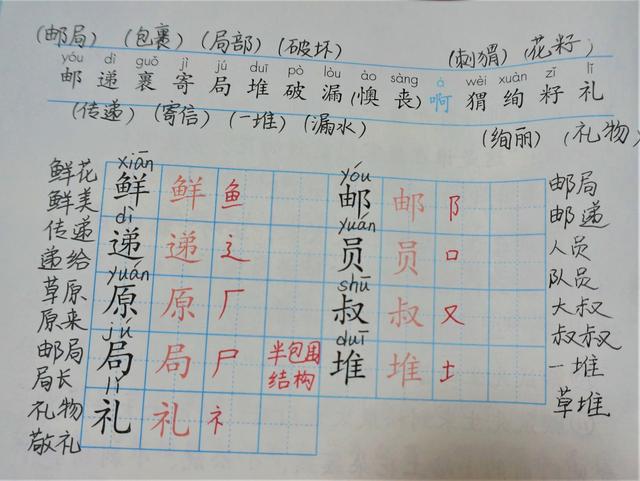 (邮局) (包裹) (局部) (破坏) (刺猬) (花籽)
yóu dì guǒ jì jú duī pò lòu ào sàng á wèi xuàn zǐ lǐ
邮 递 裹 寄 局 堆 破 漏 (懊 丧) 啊 猬 绚 籽 礼
(传递) (寄信) (一堆) (漏水) (绚丽) (礼物)
xiān yóu
鲜花 鲜 鲜 鱼 邮 邮 阝 邮局
鲜美 邮递
dì yuán
传递 递 递 辶 员 员 口 人员
递给 队员
yuán shū
草原 原 原 厂 叔 叔 又 大叔
原来 叔叔
jú duī
邮局 局 局 尸 半包围 堆 堆 土 一堆
局长 结构 草堆
lǐ
礼物 礼 礼 礻
敬礼